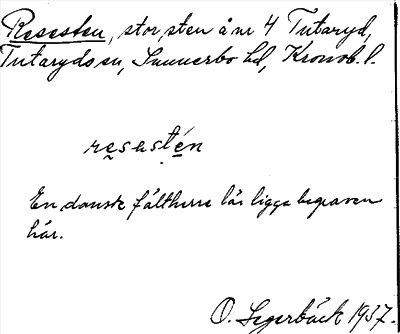 Resesten, stor sten å nr 4 Tutaryd,
Tutaryds sn, Sunnerbo hd, Kronob. l.
resastén
En dansk fältherre lär ligga begraven
här.
O. Segerbäck 1937.